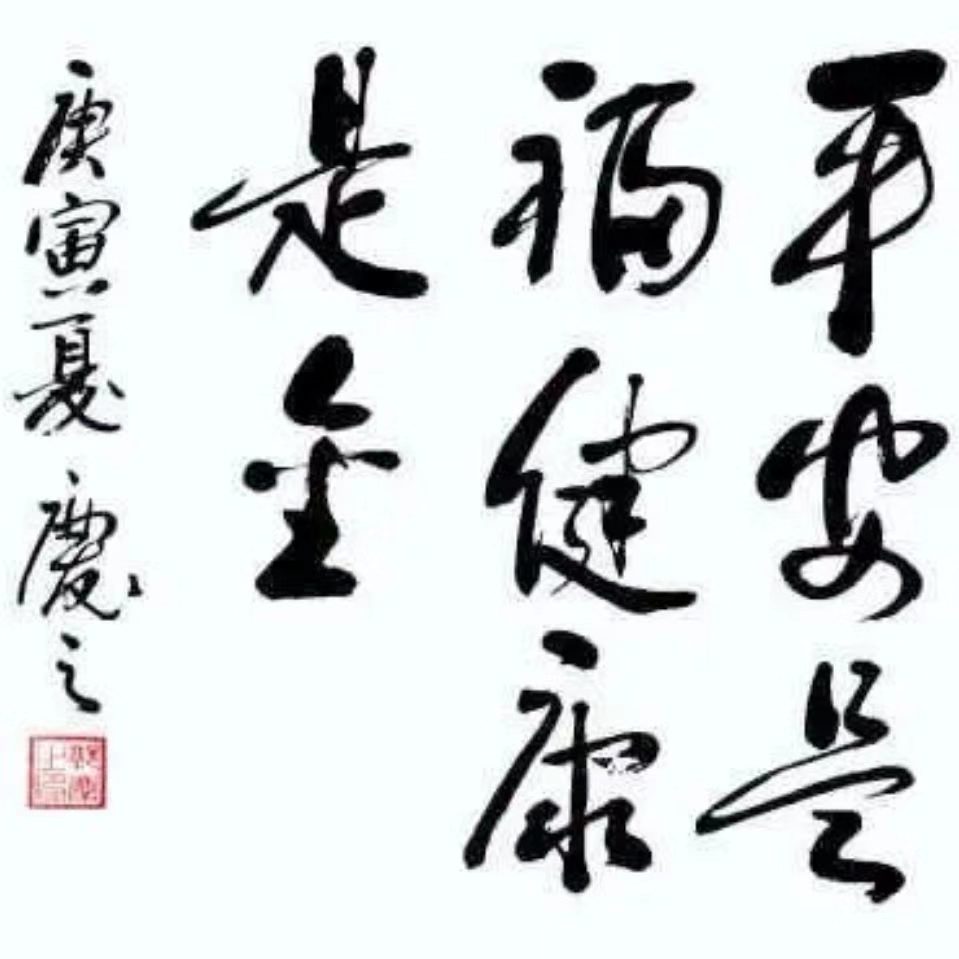 平安是
福健康
是金
庚寅夏 慶之